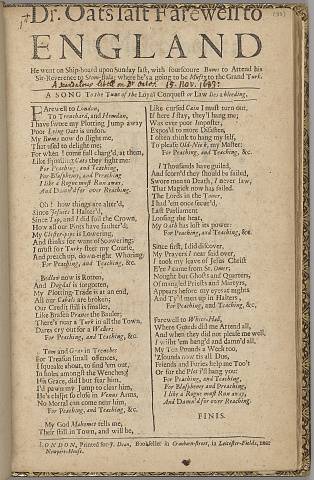 Dr. Oats last Farewell to
ENGLAND
He went on Ship-board upon Sunday last, with fourscoure Bums to Attend his
Sir-Reverence to where he's a going to be Mufty to the Grand Turk.
A scandalous libell on Dr Oates. 15. Nov. 1683.
A SONG To the Tune of the Loyal Conquest or Law lies a bleeding,
FArewell to London,
To Treachard, and Hemdon,
I have swore my Plotting Jump away
Poor Living Oats is undon.
My Bums now do slight me,
That used to delight me;
For when I come full charg'd, at them,
Like spitting Cats they fight me:
For Peaching, and Teaching,
For Blaspheming, and Preaching
I like a Rogue must Run away,
And Damn'd for over Reaching.
Oh! how things are alter'd,
Since Jesuits I Halter'd,
Since Tap, and I did foil the Crown,
How all our Plots have faulter'd;
My is Lowering,
And thinks he went of Scowering;
I must for Turky steer my Course,
And preach up, down-right Whoring;
For Peaching, and Teaching, &c.
Bedlow now is Rotten,
And Dugdal is forgotten,
My Plotting-Trade is at an end,
All our Cabals are broken;
Our Credit still is smaller,
Like Brazen Prance the Bauler;
There's near a Tark in all the Town,
Dares cry out for a Waller:
For Peaching, and Teaching, &c.
Tom and Gray in Trenches
For Treason small offences,
I squeake about, to find 'em out,
In holes amongst the Wenches;
His Grace, did last but fear him,
I'd pawn my Jump to clear him,
He's closset so close in Venus Arms,
No Mortal can come near him,
For Peaching, and Teaching, &c.
My God Mahomet tells me,
Their still in Town, and will be,
Like cursed Cain I must turn out,
If here I stay, they'l hang me;
Was ever poor Impostor,
Expos'd to more Disaster,
I often think to hang my self,
To please Old-Nick, my Master:
For Peaching, and Teaching, &c.
I Thousands have guiled,
And scorn'd they should be failed,
Swore men to Death, I never saw,
That Magick now has failed.
The Lords in the Tower,
I had 'em once secur'd,
Last Parliament
Loosing the heat,
My Oath has lost its power:
For Peaching, and Teaching, &c.
Since first, I did discover,
My Prayers I near said over,
I took my leave of Jesus Christ
E're I came from St. Omer;
Nought but Ghosts and Quarters,
Of mangled Priests and Martyrs,
Appears before my eyes at nights
And Ty'd men up in Halters,
For Peaching, and Teaching, &c.
Farewell to White-Hall,
Where Guards did me Attend all,
And when they did not please me well,
I wisht 'em hang'd and damn'd all,
My Ten Pounds a Week too,
'Zlounds now tis all Due,
Friends and Furies help me Too't
Or for the Pox I'll hang you:
For Peaching, and Teaching,
For Blasphemy and Preaching
I like a Rogue must Run away,
And Damn'd for over Reaching.
FINIS.
LONDON, Printed for J. Dean, Bookseller in Cranborn-street, in Leicester-Fields, near
Newport-House.